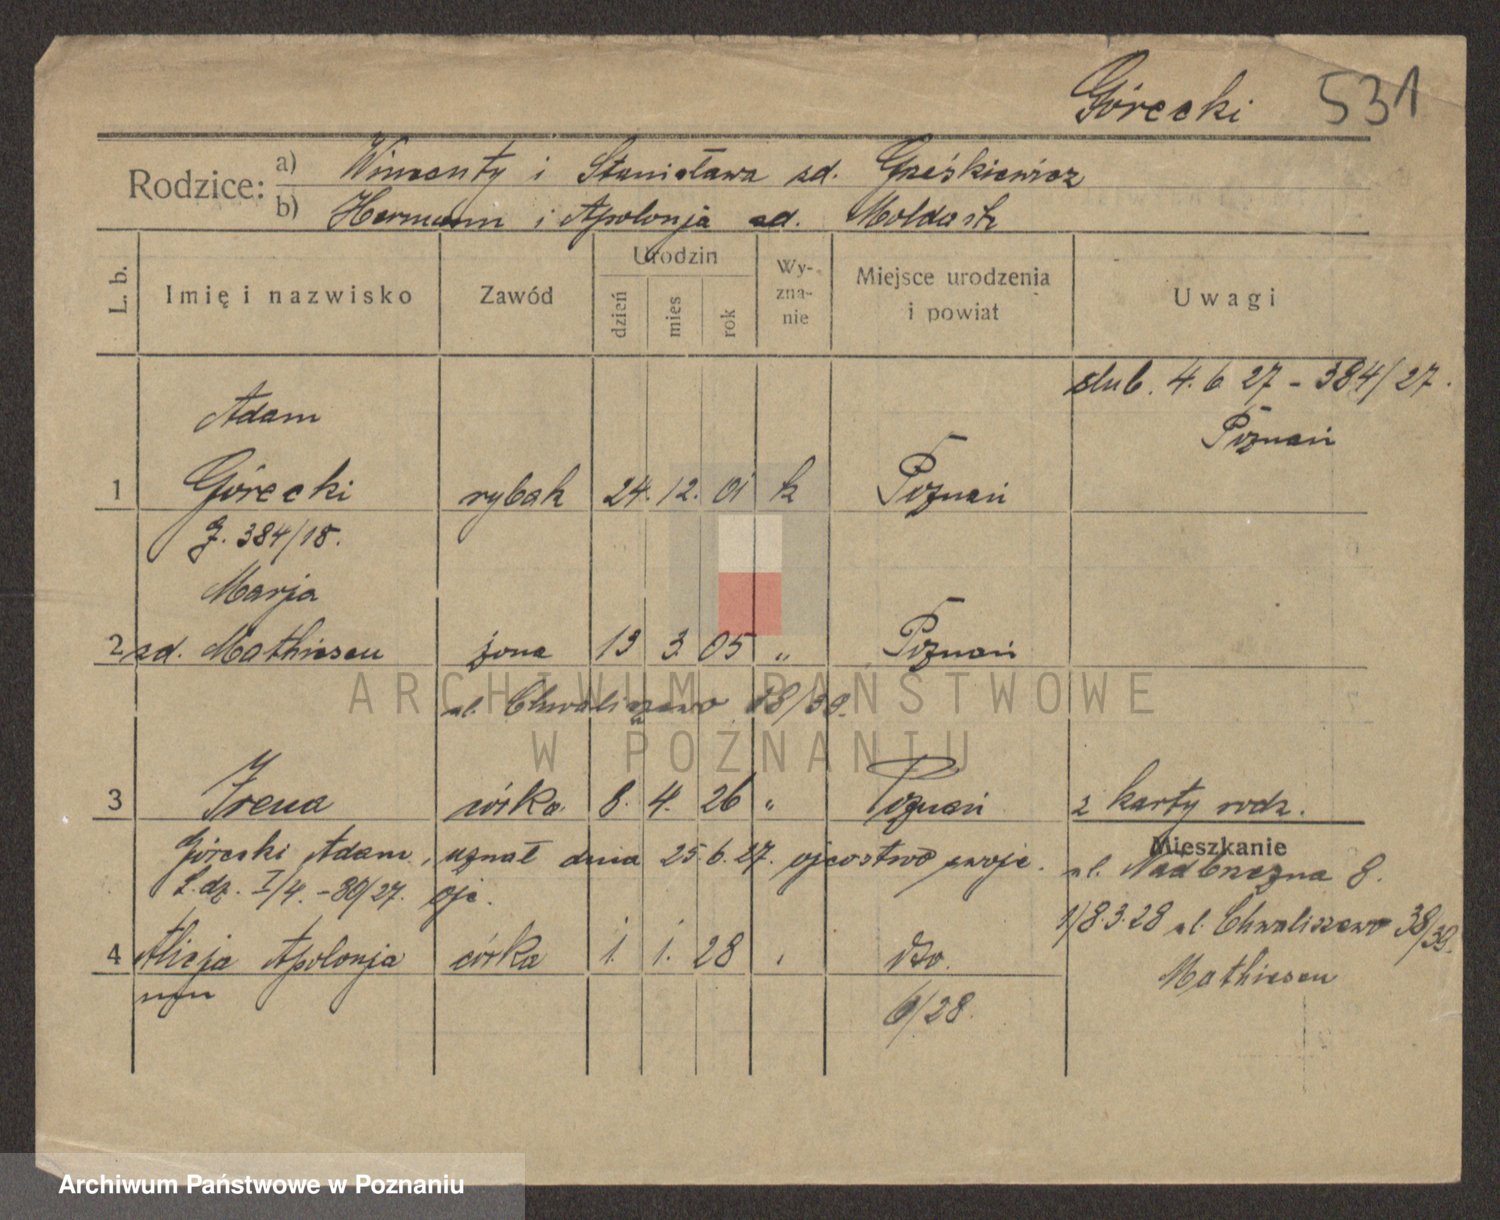 Górecki 531
Rodzice: a) Wincenty i Stanisława zd. Grześkiewicz
b) Hermann i Apolonja zd.
L. b. Imię i nazwisko Zawód Urodzin dzień mies rok Wyzna-nie Miejsce urodzenia i powiat Uwagi
ślub. 4.6 27 - 384/27.
Poznań
Adam
1 Górecki rybak 24. 12. 01 k Poznań
J. 384/18.
Marja
2 zd. Mathiesen żona 13 3. 05 „ Poznań
ul. Chwaliszewo 38/39.
3 Irena córka 8. 4. 26 „ Poznań z karty rodz.
Górecki Adam, uznał dnia 25.6.27. ojcostwo swoje.
L.dz. I/4. - 80/27.
Mieszkanie
ul. Nadbrzeżna 8.
1) 8.3.28 ul. Chwaliszewo 38/39.
Mathiesen
4 Alicja Apolonja córka 1. 1. 28 dto.
6/28.
ARCHIWUM PAŃSTWOWE
W POZNANIU
Archiwum Państwowe w Poznaniu